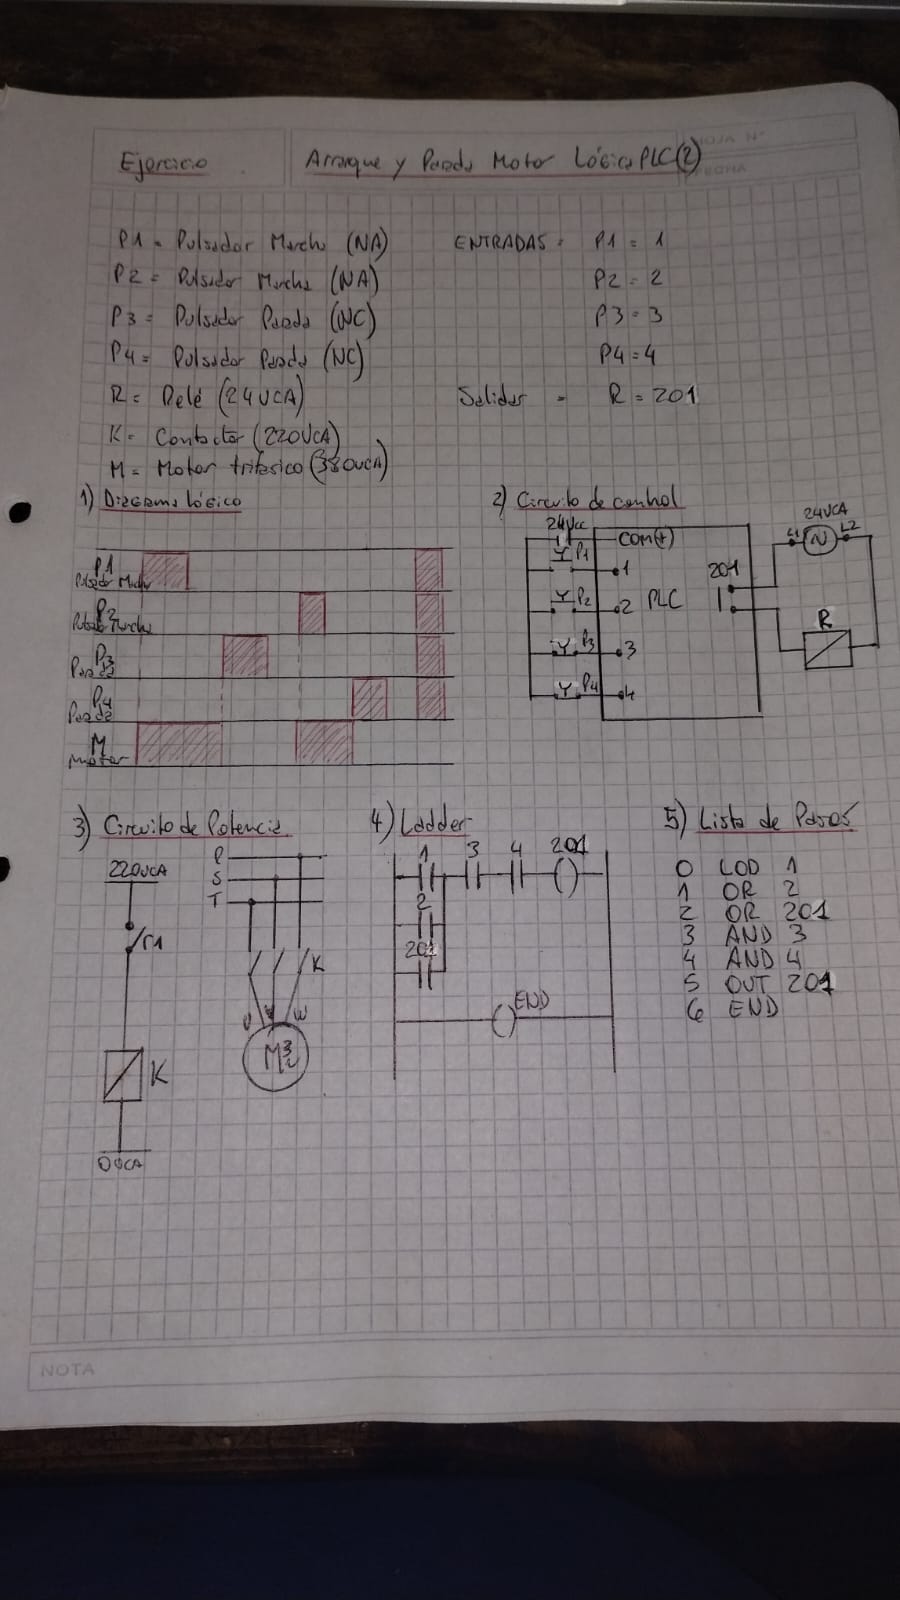 HOJA N°
FECHA
Ejercicio
Arranque y Parada Motor Lógica PLC(2)
P1 = Pulsador Marcha (NA)
P2 = Pulsador Marcha (NA)
P3 = Pulsador Parada (NC)
P4 = Pulsador Parada (NC)
R = Relé (24VCA)
K = Contactor (220VCA)
M = Motor trifásico (380VCA)
ENTRADAS = P1 = 1
P2 = 2
P3 = 3
P4 = 4
Salidas = R = 201
1) Diagrama Lógico
P1
Pulsador Marcha
P2
Pulsador Marcha
P3
Parada
P4
Parada
M
Motor
2) Circuito de control
24Vcc
COM(+)
P1
1
P2
2
PLC
P3
3
P4
4
201
24VCA
L1
N
L2
R
3) Circuito de Potencia
220VCA
R
S
T
K
U
W
M3~
K
0VCA
4) Ladder
1
3
4
201
2
201
END
5) Lista de Pasos
0 LOD 1
1 OR 2
2 OR 201
3 AND 3
4 AND 4
5 OUT 201
6 END
NOTA